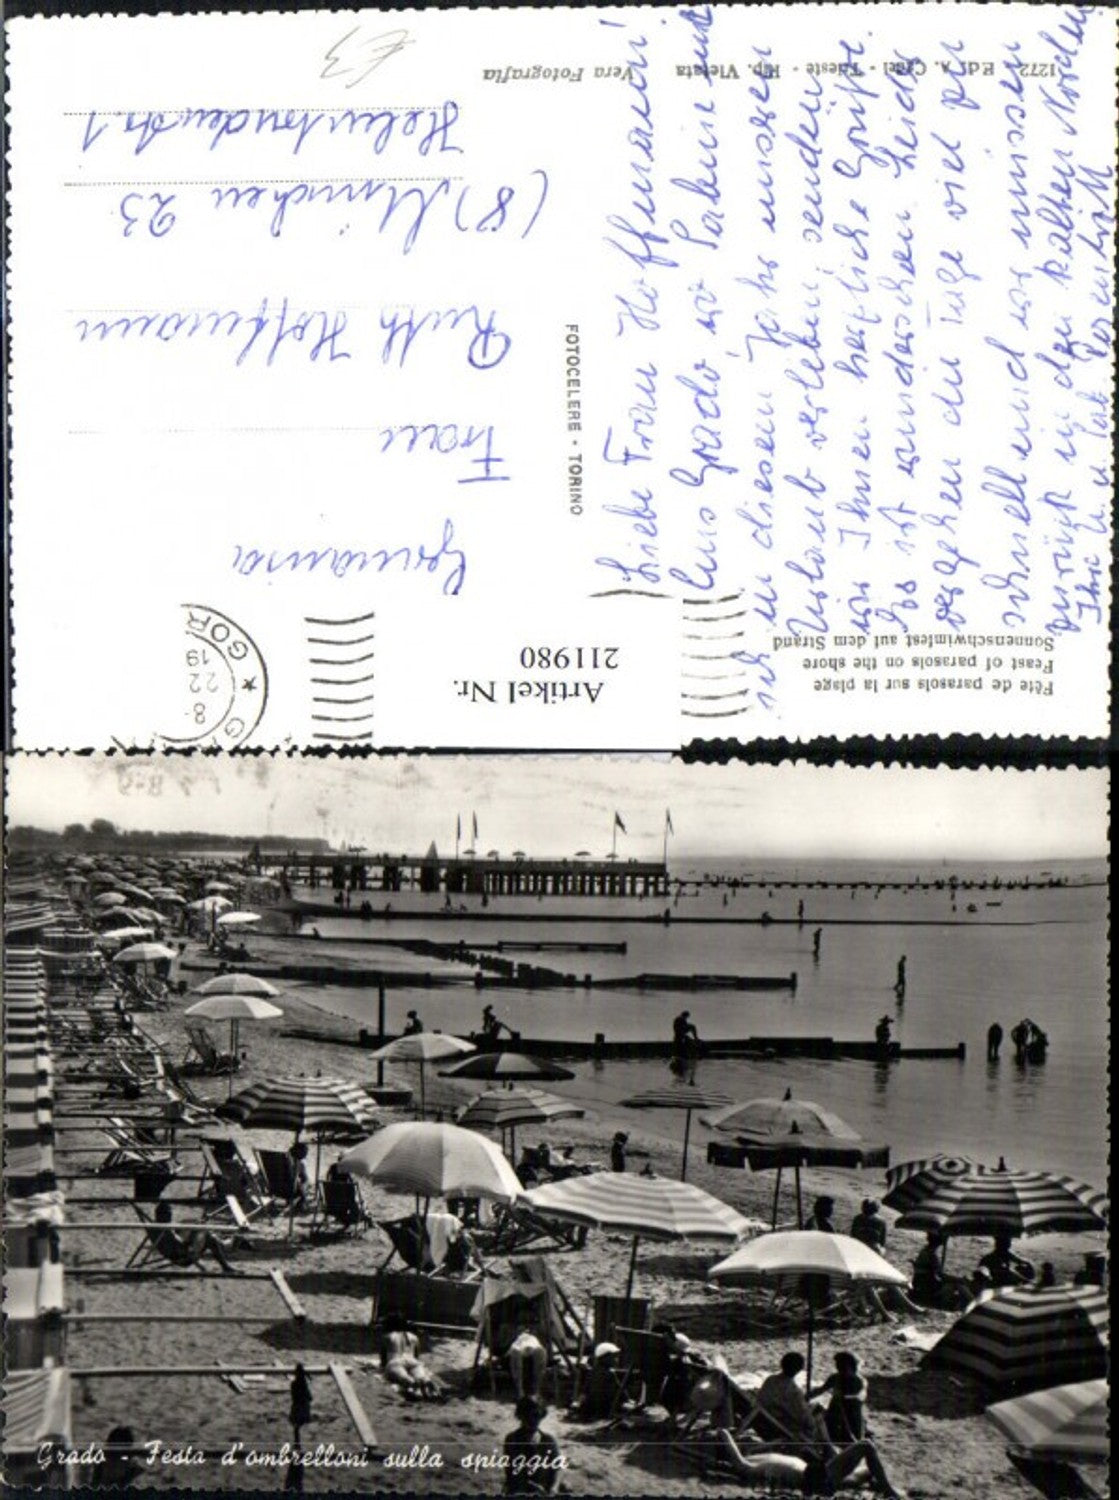 Fête de parasols sur la plage
Feast of parasols on the shore
Sonnenschwimfest auf dem Strand
Artikel Nr.
211980
GOR
8-
22
19
Germania
Frau
Ruth Hoffmann
(8) München 23
1
FOTOCELERE - TORINO
Liebe Frau Hoffmann!
Aus Grado, wo Sabine und
ich in diesem Jahr unseren
Urlaub verleben, senden
wir Ihnen herzliche Grüße.
Es ist wunderschön. Leider
vergehen die Tage viel zu
schnell und wir müssen
zurück in den kalten Norden
Ihre
1272 Ediz. A. - Trieste - Rip. Vietata
Vera Fotografia
€3
Grado - Festa d'ombrelloni sulla spiaggia